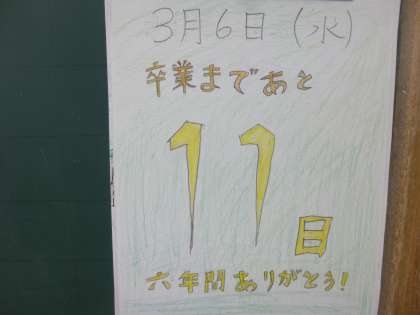 3月6日(水)
卒業まであと
11
日
六年間ありがとう!